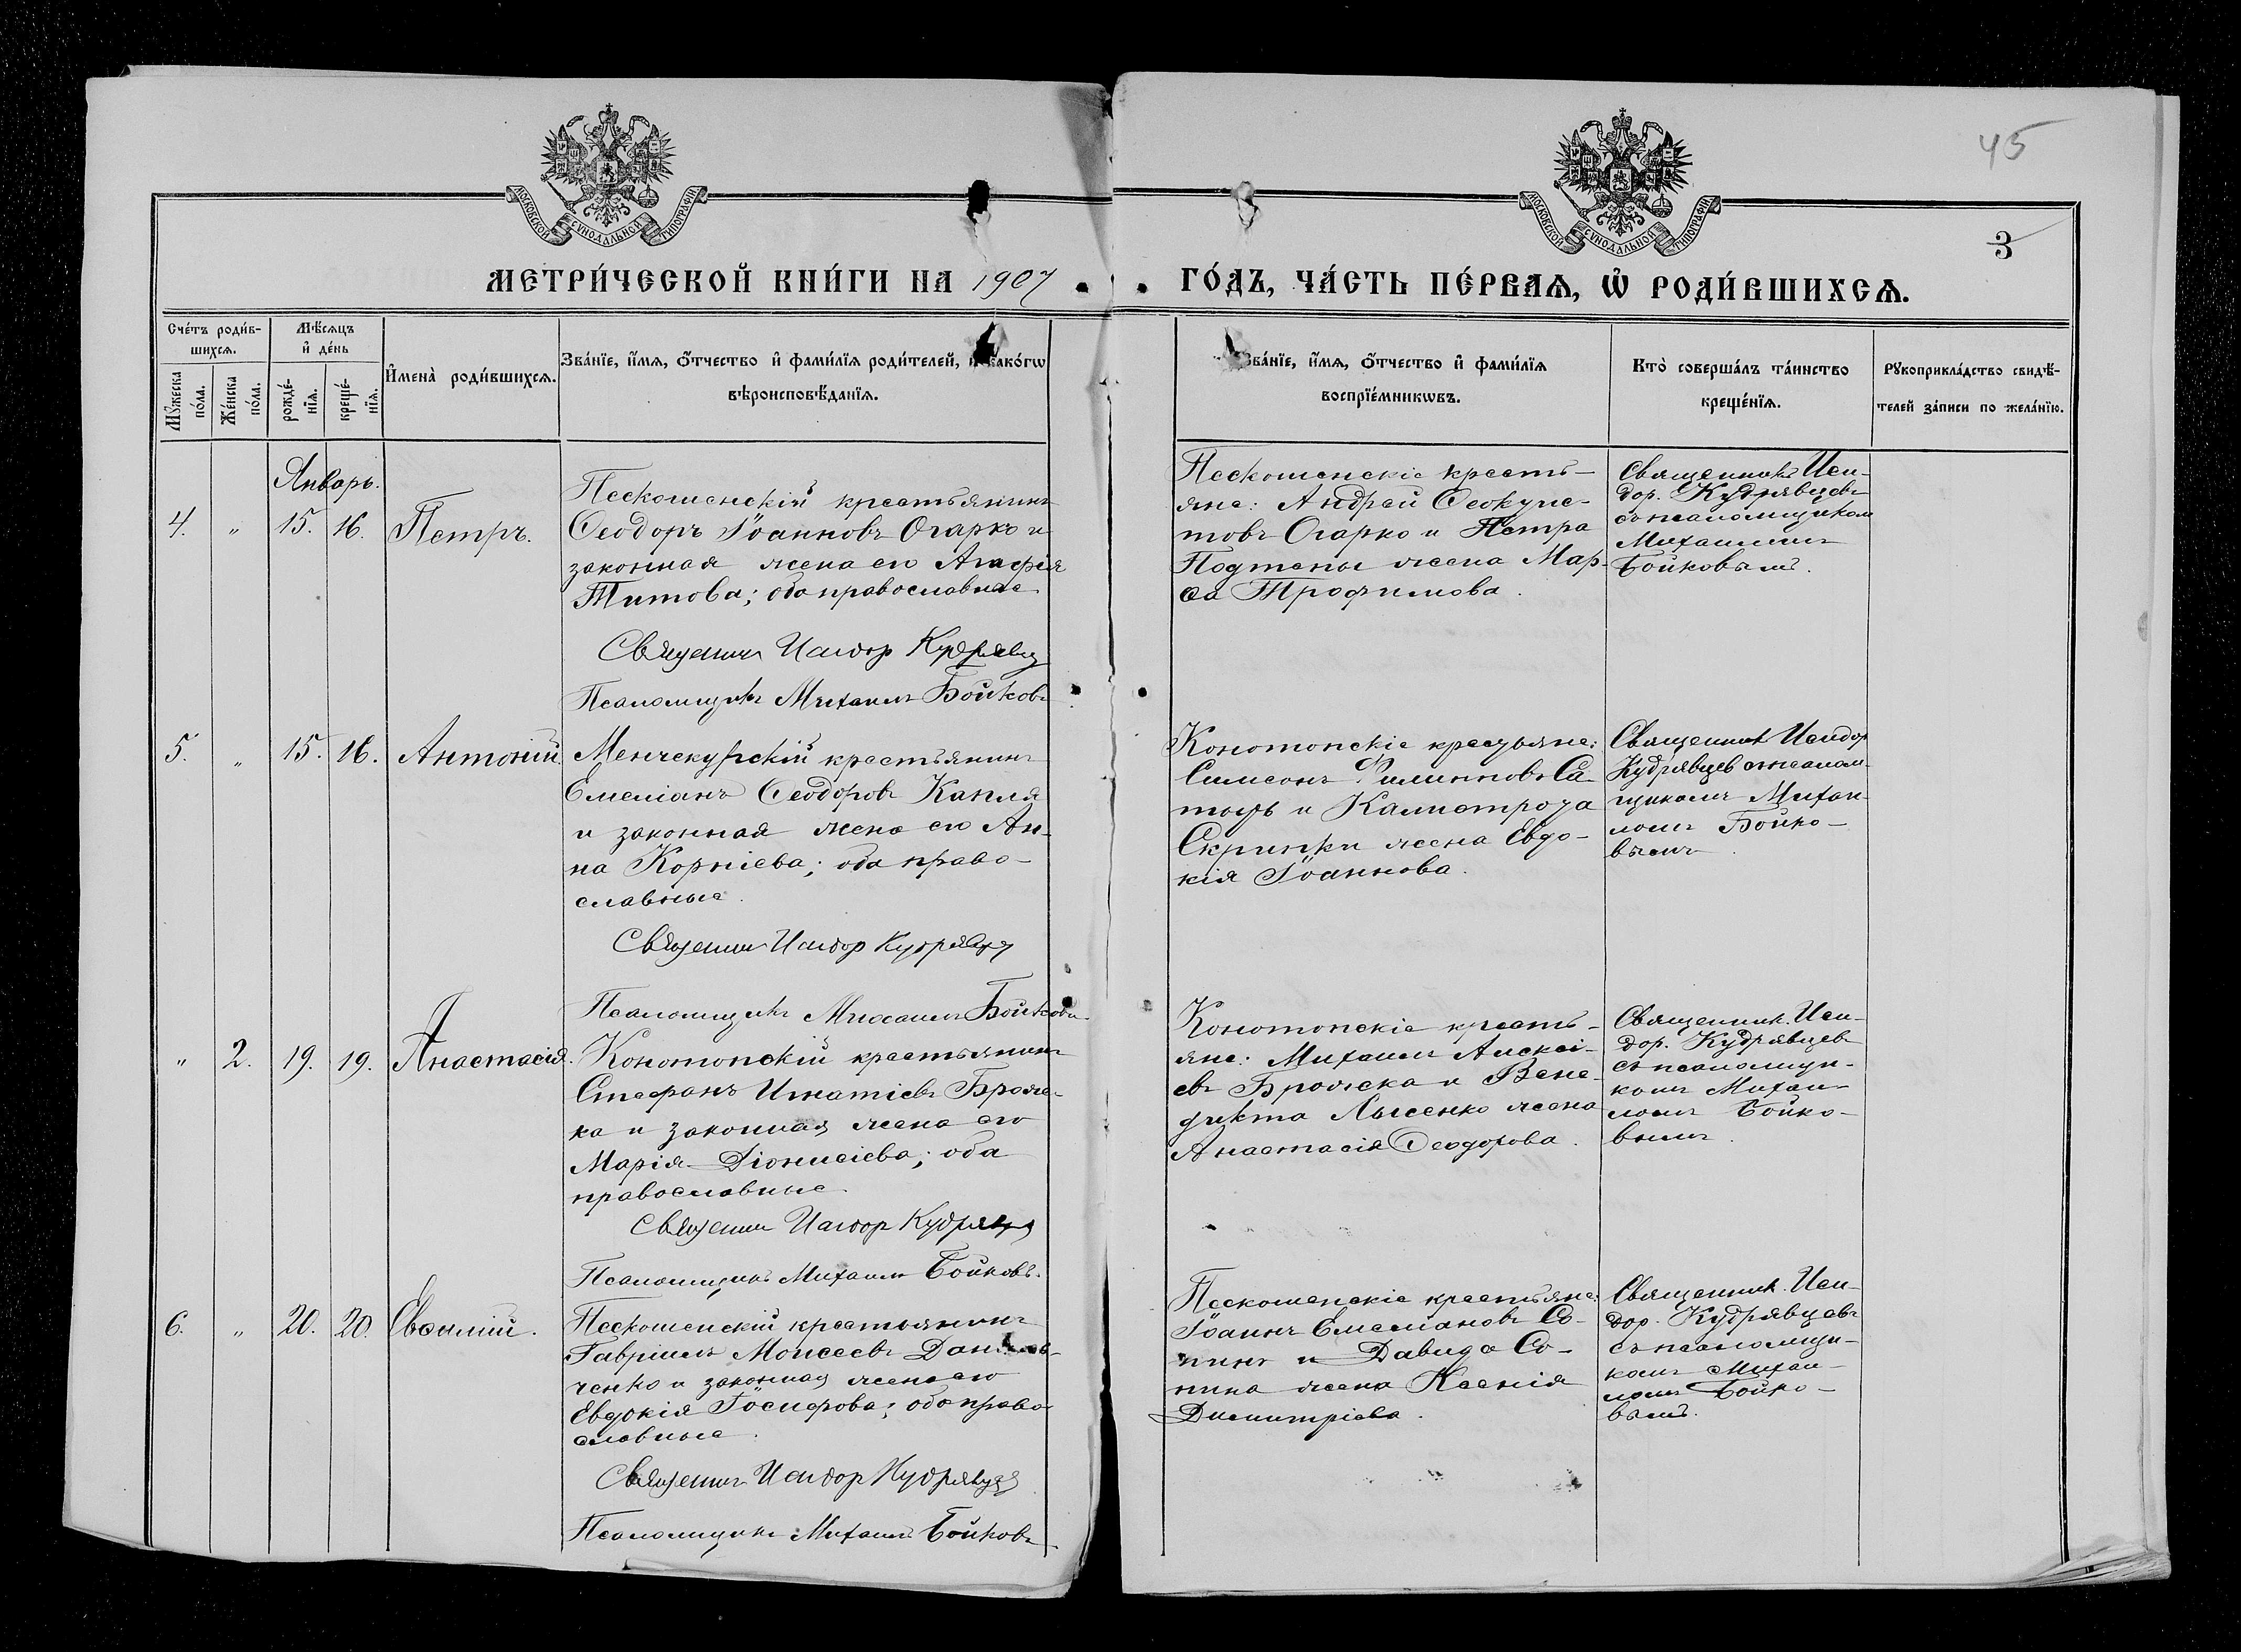 45
МОСКОВСКОЙ СѴНОДАЛЬНОЙ ТИПОГРАФІИ
МОСКОВСКОЙ СѴНОДАЛЬНОЙ ТИПОГРАФІИ
3
МЕТРИ́ЧЕСКОЙ КНИ́ГИ НА 1907
ГО́ДЪ, ЧА́СТЬ ПЕ́РВАѦ, Ѡ҆ РОДИ́ВШИХСѦ.
Сче́тъ роди́в-
шихсѧ.
Мѣ́сѧцъ
и҆ де́нь
Мꙋ́жеска
по́ла.
Же́нска
по́ла.
рожде́-
нїѧ.
креще́-
нїѧ.
И҆мена̀ роди́вшихсѧ.
Зва́нїе, и҆́мѧ, ѻ҆́тчество и҆ фами́лїѧ роди́телей, и҆ како́гѡ
вѣроисповѣ́данїѧ.
Зва́нїе, и҆́мѧ, ѻ҆́тчество и҆ фами́лїѧ
воспрїе́мникѡвъ.
Кто̀ соверша́лъ та́инство
креще́нїѧ.
Рꙋкоприкла́дство свидѣ́-
телей за́писи по жела́нїю.
Январь.
4. „ 15. 16. Петръ.
Пескошенскій крестьянинъ
Ѳеодоръ Іоанновъ Огарко и
законная жена его Агафія
Титова; оба православные
Священникъ Исидор Кудрявцев
Псаломщикъ Михаилъ Бойковъ
Пескошенскіе кресть-
яне: Андрей Ѳеокти-
товъ Огарко и Петра
жена Мар-
ѳа Трофимова.
Священникъ Иси-
дор. Кудрявцевъ
съ псаломщиком
Михаиломъ
Бойковымъ.
5. „ 15. 16. Антоній.
Менчекурскій крестьянинъ
Емеліанъ Ѳеодоровъ Капля
и законная жена его Ан-
на Корніева; оба право-
славные.
Священник Исидор Кудрявцев
Псаломщикъ Михаилъ Бойковъ.
Конотопскіе крестьяне:
Симеонъ Филипповъ
и Калистрата
Скрипки жена Евдо-
кія Іоаннова.
Священник Исидор
Кудрявцев съ псалом-
щикомъ Михаи-
ломъ Бойко-
вымъ.
„ 2. 19. 19. Анастасія.
Конотопскій крестьянинъ
Стефанъ Игнатіевъ Броже-
ка и законная жена его
Марія Діонисіева; оба
православные
Священник Исидор Кудрявцев
Псаломщикъ Михаилъ Бойковъ.
Конотопскіе кресть-
яне: Михаилъ Алексі-
евъ Брожека и Вене-
дикта Лысенко жена
Анастасія Ѳеодорова.
Священник. Иси-
дор. Кудрявцевъ
съ псаломщи-
комъ Михаи-
ломъ Бойко-
вымъ.
6. „ 20. 20. Евѳимій.
Пескошенскій крестьянинъ
Гавріилъ Моисеевъ Данильв-
ченко и законная жена его
Евдокія Іосифова; оба право-
славные.
Священникъ Исидор Кудрявцев
Псаломщикъ Михаилъ Бойковъ
Пескошенскіе крестьяне:
Іоаннъ Емеліановъ Со-
нинъ и Давида Со-
нина жена Ксенія
Димитріева.
Священник. Иси-
дор. Кудрявцевъ
съ псаломщи-
комъ Михаи-
ломъ Бойко-
вымъ.